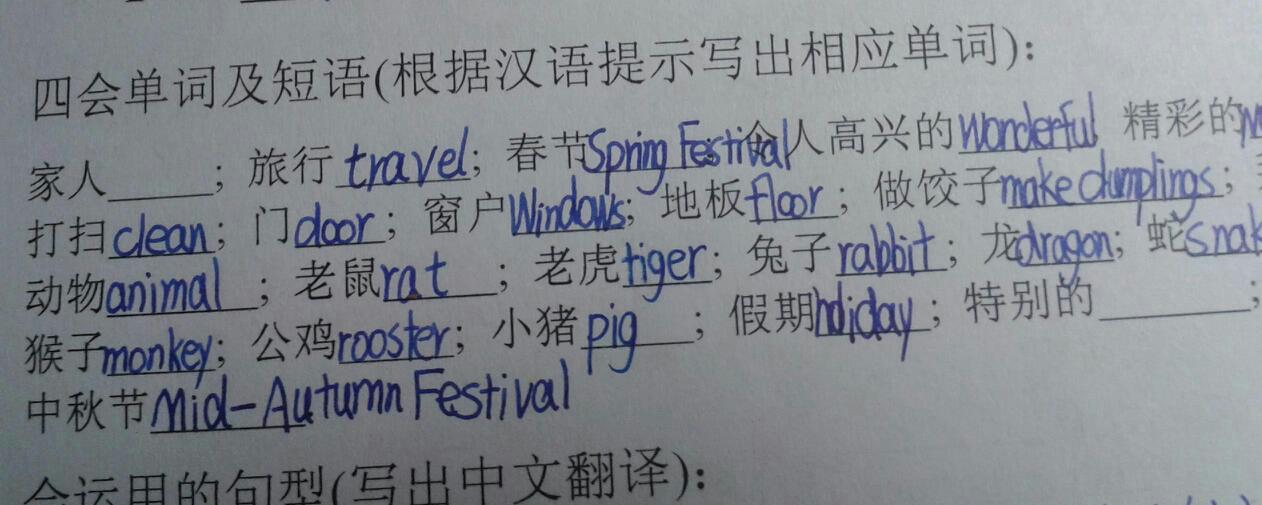 四会单词及短语(根据汉语提示写出相应单词):
家人_____; 旅行travel; 春节Spring Festival 人高兴的wonderful 精彩的
打扫clean; 门door; 窗户Windows; 地板floor; 做饺子make dumplings;
动物animal; 老鼠rat; 老虎tiger; 兔子rabbit; 龙dragon; 蛇snak
猴子monkey; 公鸡rooster; 小猪pig; 假期holiday; 特别的_______;
中秋节Mid-Autumn Festival
会运用的句型(写出中文翻译):